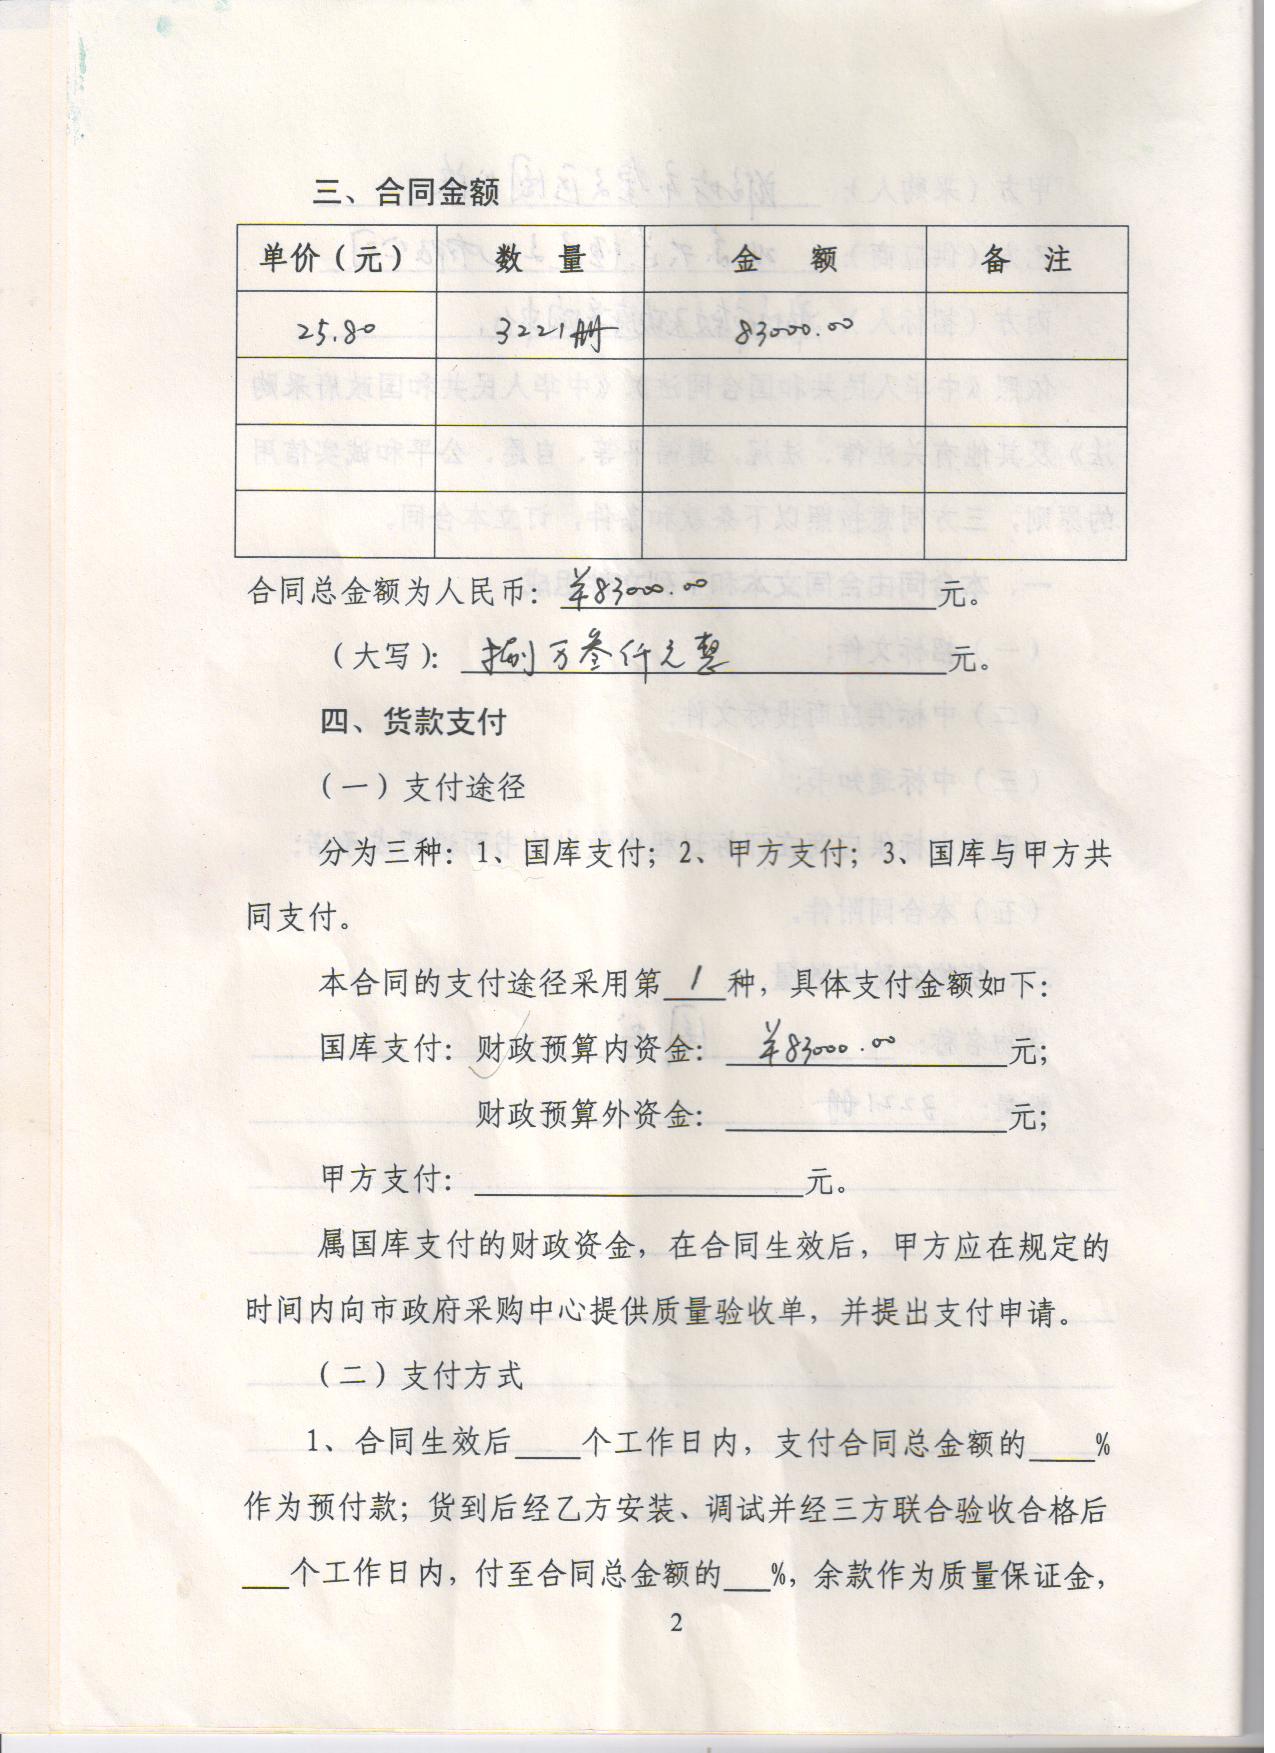 三、合同金额
单价（元） 数 量 金 额 备 注
25.80 3221册 83000.00
合同总金额为人民币：￥83000.00元。
（大写）：捌万叁仟元整元。
四、货款支付
（一）支付途径
分为三种：1、国库支付；2、甲方支付；3、国库与甲方共
同支付。
本合同的支付途径采用第 1 种，具体支付金额如下：
国库支付：财政预算内资金：￥83000.00元；
财政预算外资金：____元；
甲方支付：____元。
属国库支付的财政资金，在合同生效后，甲方应在规定的
时间内向市政府采购中心提供质量验收单，并提出支付申请。
（二）支付方式
1、合同生效后____个工作日内，支付合同总金额的____%
作为预付款；货到后经乙方安装、调试并经三方联合验收合格后
___个工作日内，付至合同总金额的___%，余款作为质量保证金，
2